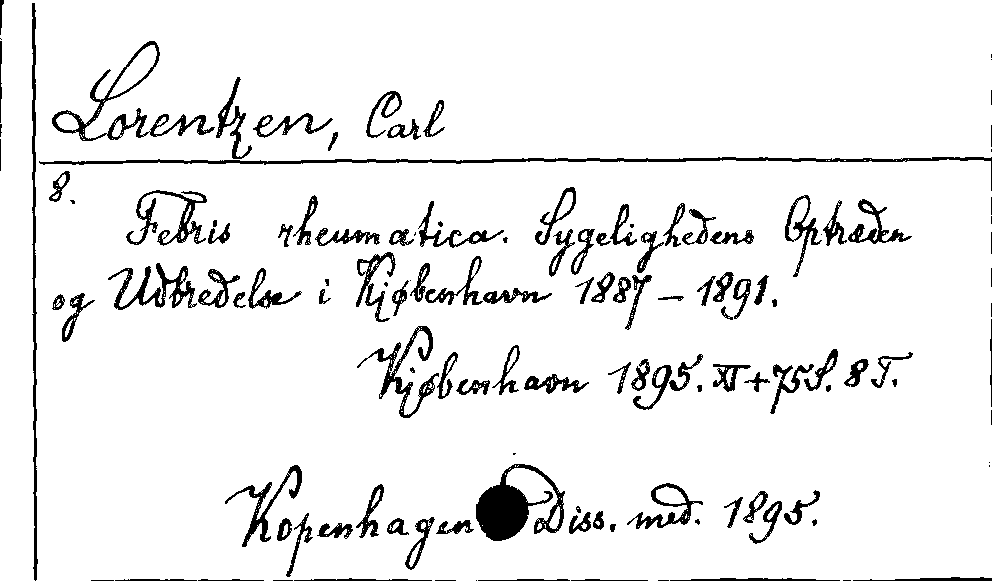 Lorentzen, Carl
8.
Febris rheumatica. Sygelighedens Optræden
og Udbredelse i Kjøbenhavn 1887 - 1891.
Kjøbenhavn 1895. XI + 75 S. 8 T.
Kopenhagen Diss. med. 1895.